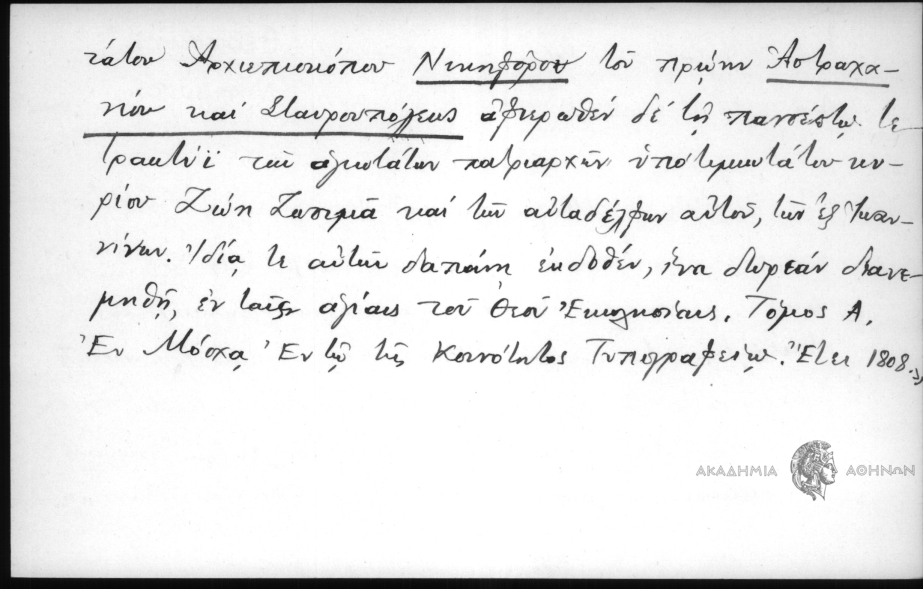 τάτου Ἀρχιεπισκόπου Νικηφόρου τοῦ πρώην Ἀστραχα-
νίου καί Σταυρουπόλεως ἀφιερωθέν δέ τῇ πανσέπτῳ τε
τρακτύϊ τῶν ἁγιωτάτων πατριαρχῶν ὑπό τιμιωτάτου κυ-
ρίου Ζώη Ζωσιμᾶ καί τῶν αὐταδέλφων αὐτοῦ, τῶν ἐξ Ἰωαν-
νίνων. Ἰδίᾳ τε αὐτῶν δαπάνῃ ἐκδοθέν, ἵνα δωρεάν διανε-
μηθῇ, ἐν ταῖς ἁγίαις τοῦ Θεοῦ Ἐκκλησίαις. Τόμος Α.
Ἐν Μόσχᾳ Ἐν τῷ τῆς Κοινότητος Τυπογραφείῳ. Ἔτει 1808.
ΑΚΑΔΗΜΙΑ ΑΘΗΝΩΝ